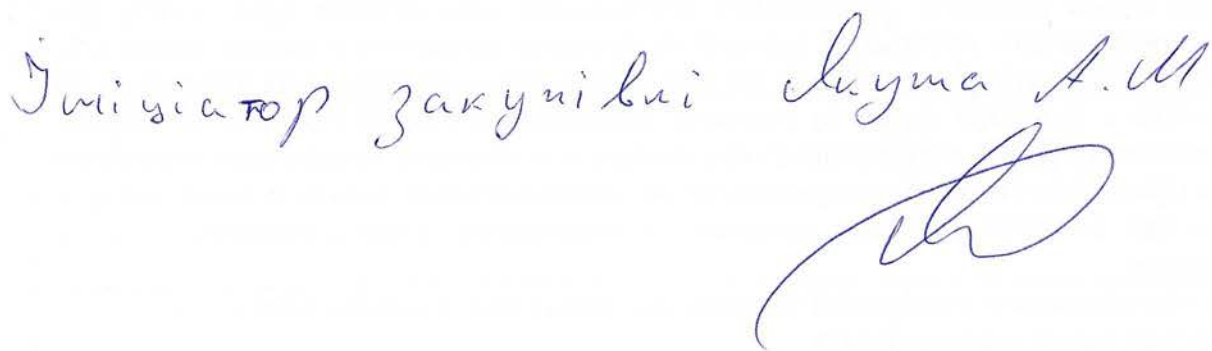 Ініціатор закупівлі Якута А.М